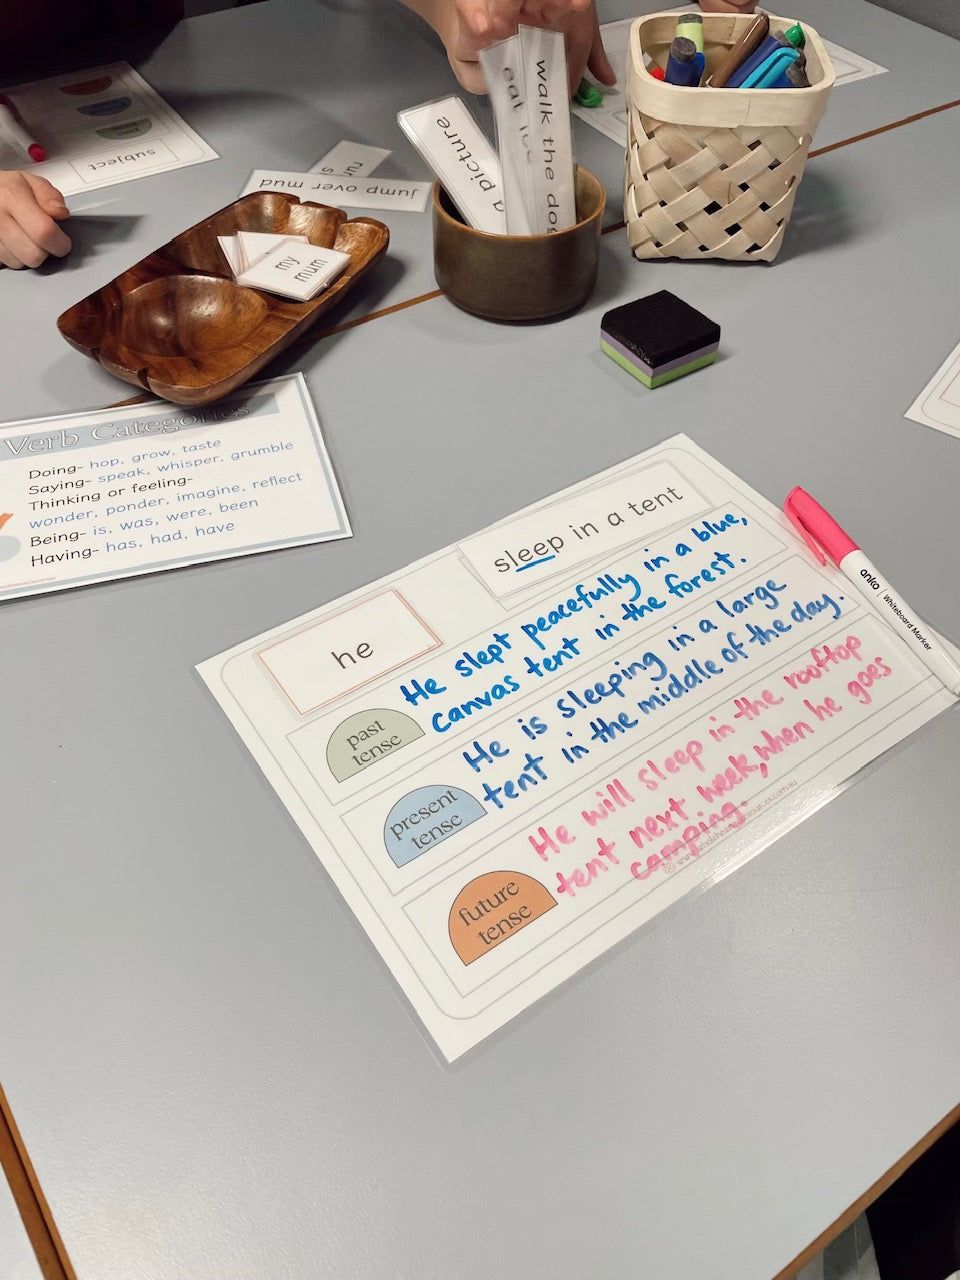 subject
jump over mud
my
mum
a picture
eat
walk the dog
Verb Categories
Doing- hop, grow, taste
Saying- speak, whisper, grumble
Thinking or feeling-
wonder, ponder, imagine, reflect
Being- is, was, were, been
Having- has, had, have
he
sleep in a tent
past
tense
He slept peacefully in a blue,
canvas tent in the forest.
present
tense
He is sleeping in a large
tent in the middle of the day.
future
tense
He will sleep in the rooftop
tent next week, when he goes
camping.
anko
Whiteboard Marker